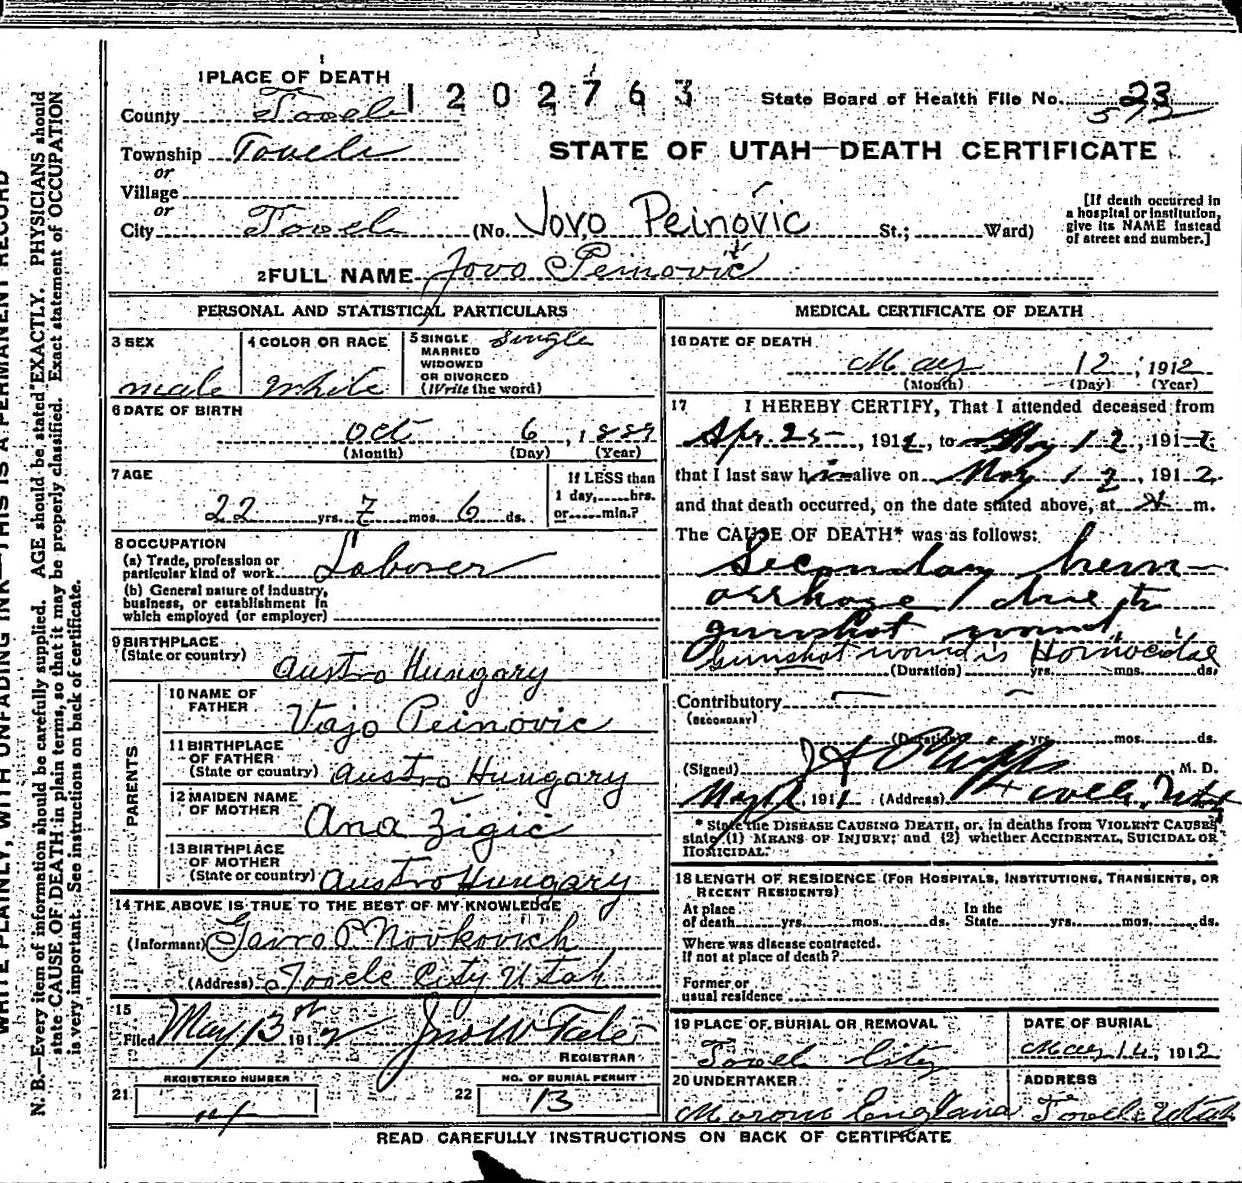 1 PLACE OF DEATH
1202763
State Board of Health File No. 23
572
County Tooele
Township Tooele
STATE OF UTAH—DEATH CERTIFICATE
or
Village
or
City Tooele (No. Jovo Peinovic St.; Ward)
[If death occurred in
a hospital or institution,
give its NAME instead
of street and number.]
2 FULL NAME Jovo Peinović
PERSONAL AND STATISTICAL PARTICULARS
3 SEX
male
4 COLOR OR RACE
White
5 SINGLE
MARRIED
WIDOWED
OR DIVORCED
(Write the word)
Single
6 DATE OF BIRTH
Oct 6, 1889
(Month) (Day) (Year)
7 AGE
22 yrs. 7 mos. 6 ds.
If LESS than
1 day, hrs.
or min.?
8 OCCUPATION
(a) Trade, profession or
particular kind of work Laborer
(b) General nature of industry,
business, or establishment in
which employed (or employer)
9 BIRTHPLACE
(State or country)
Austro Hungary
PARENTS
10 NAME OF
FATHER
Vajo Peinovic
11 BIRTHPLACE
OF FATHER
(State or country) Austro Hungary
12 MAIDEN NAME
OF MOTHER
Ana Zigic
13 BIRTHPLACE
OF MOTHER
(State or country) Austro Hungary
14 THE ABOVE IS TRUE TO THE BEST OF MY KNOWLEDGE
(Informant) Gavro P. Novkovich
(Address) Tooele City Utah
15
Filed May 13 1912 Jno W Tate
REGISTRAR
REGISTERED NUMBER
21
NO. OF BURIAL PERMIT
22 13
MEDICAL CERTIFICATE OF DEATH
16 DATE OF DEATH
May 12, 1912
(Month) (Day) (Year)
17 I HEREBY CERTIFY, That I attended deceased from
Apr 25, 1912, to May 12, 1912
that I last saw him alive on May 12, 1912,
and that death occurred, on the date stated above, at m.
The CAUSE OF DEATH* was as follows:
Secondary hem-
orrhage due to
gunshot wound,
Gunshot wound is Homocidal
(Duration) yrs. mos. ds.
Contributory
(SECONDARY)
(Duration) yrs. mos. ds.
(Signed) M. D.
May 12 1911 (Address) Tooele, Utah
* State the DISEASE CAUSING DEATH, or, in deaths from VIOLENT CAUSES,
state (1) MEANS OF INJURY; and (2) whether ACCIDENTAL, SUICIDAL OR
HOMICIDAL.
18 LENGTH OF RESIDENCE (FOR HOSPITALS, INSTITUTIONS, TRANSIENTS, OR
RECENT RESIDENTS)
At place
of death yrs. mos. ds.
In the
State yrs. mos. ds.
Where was disease contracted,
if not at place of death?
Former or
usual residence
19 PLACE OF BURIAL OR REMOVAL
Tooele City
DATE OF BURIAL
May 14, 1912
20 UNDERTAKER
Morone England
ADDRESS
Tooele Utah
READ CAREFULLY INSTRUCTIONS ON BACK OF CERTIFICATE
WRITE PLAINLY, WITH UNFADING INK—THIS IS A PERMANENT RECORD
N. B.—Every item of information should be carefully supplied. AGE should be stated EXACTLY. PHYSICIANS should
state CAUSE OF DEATH in plain terms, so that it may be properly classified. Exact statement of OCCUPATION
is very important. See instructions on back of certificate.